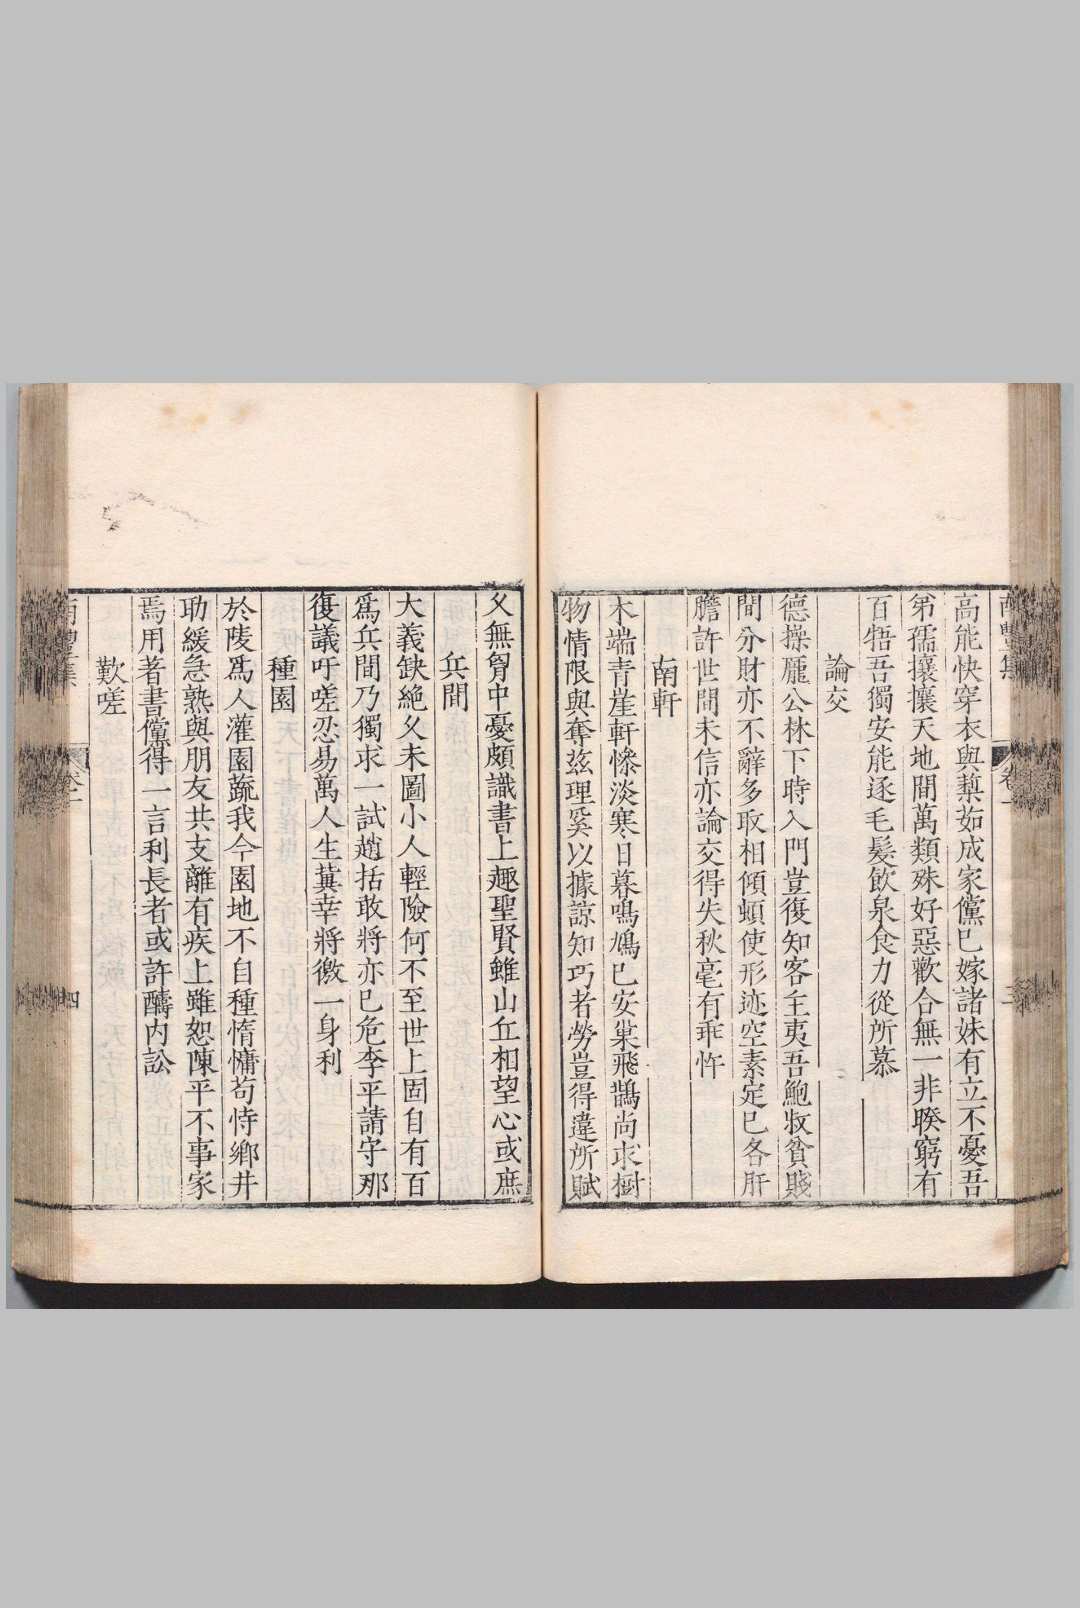 高能快穿衣與藜茹成家儻已嫁諸妹有立不憂吾
弟孺攘攘天地間萬類殊好惡歡合無一非暌窮有
百牾吾獨安能逐毛髮飲泉食力從所慕
論交
德操龐公林下時入門豈復知客主夷吾鮑牧貧賤
間分財亦不辭多取相傾頓使形迹空素定已各肝
膽許世間未信亦論交得失秋毫有乖忤
南軒
木端青崖軒慘淡寒日暮鳴鳩已安巢飛鵲尚求樹
物情限與奪茲理奚以據諒知巧者勞豈得違所賦
乆無胷中憂頗識書上趣聖賢雖山丘相望心或庶
兵間
大義缺絕乆未圖小人輕險何不至世上固自有百
爲兵間乃獨求一試趙括敢將亦已危李平請守那
復議吁嗟忍易萬人生冀幸將徼一身利
種園
於陵爲人灌園蔬我今園地不自種惰慵苟恃鄉井
助緩急熟與朋友共支離有疾上雖恕陳平不事家
焉用著書儻得一言利長者或許醻内訟
歎嗟
南豐集
卷一
四